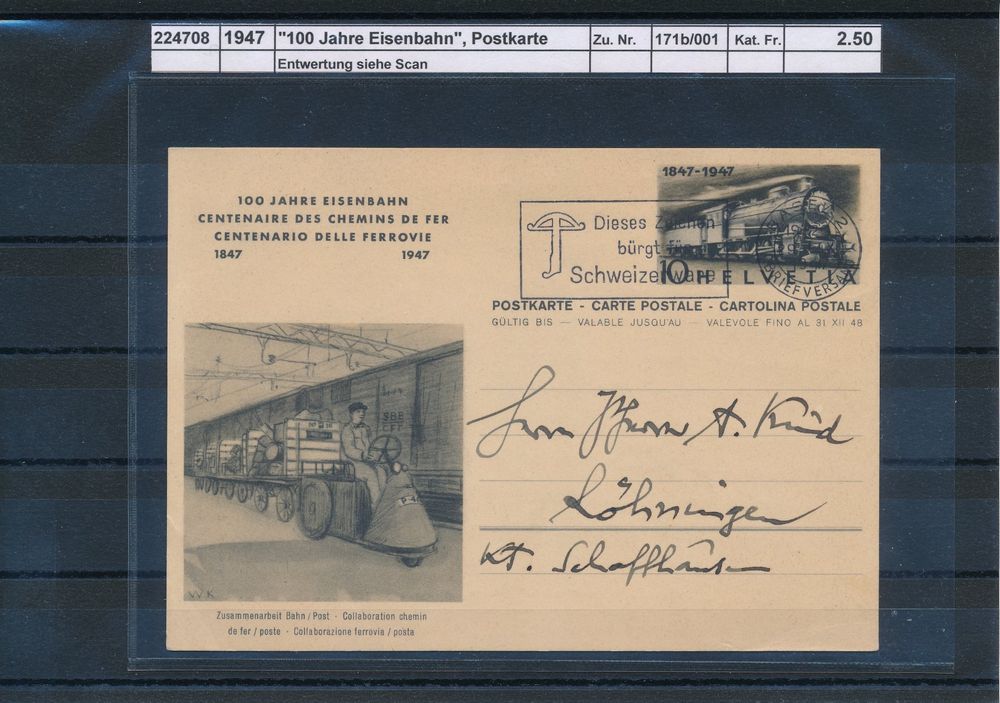 224708 1947 "100 Jahre Eisenbahn", Postkarte Zu. Nr. 171b/001 Kat. Fr. 2.50
Entwertung siehe Scan
1847-1947
100 JAHRE EISENBAHN
CENTENAIRE DES CHEMINS DE FER
CENTENARIO DELLE FERROVIE
1847 1947
Dieses Zeichen
bürgt für
Schweizerware
10 HELVETIA
BRIEFVERSAND
POSTKARTE - CARTE POSTALE - CARTOLINA POSTALE
GÜLTIG BIS — VALABLE JUSQU'AU — VALEVOLE FINO AL 31 XII 48
SBB
CFF
Herrn Pfarrer A. Kind
Löhningen
Kt. Schaffhausen
VVK
Zusammenarbeit Bahn / Post · Collaboration chemin
de fer / poste · Collaborazione ferrovia / posta